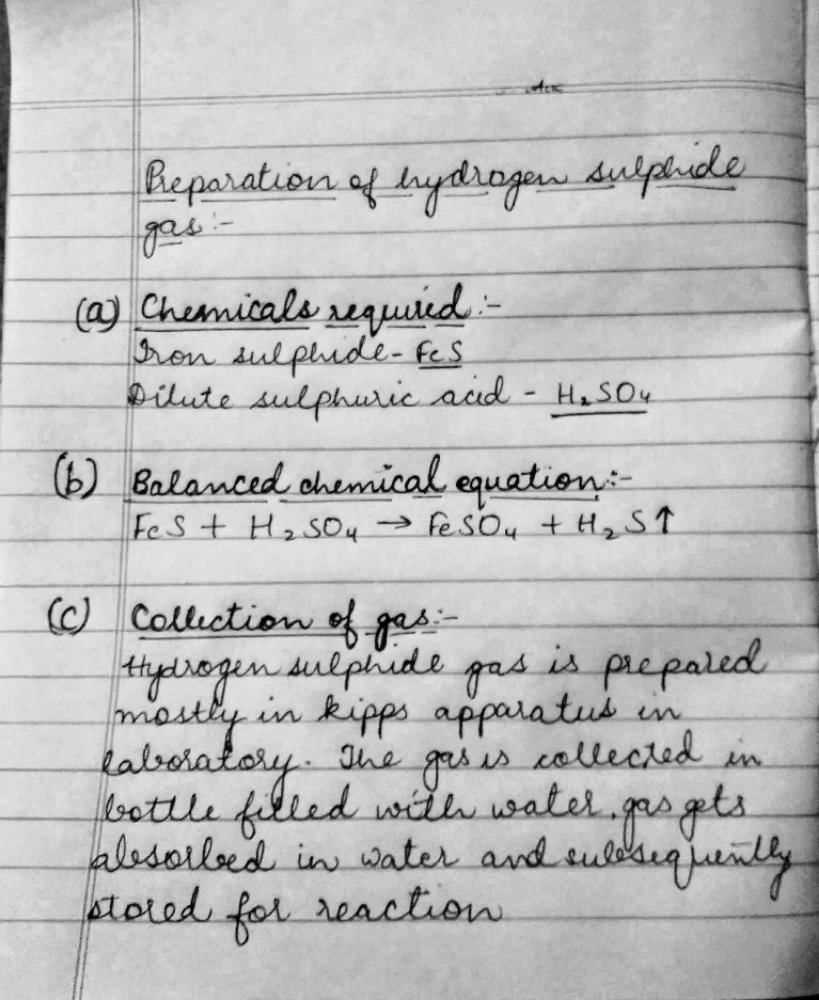 Preparation of hydrogen sulphide
gas:-
(a) Chemicals required:-
Iron sulphide - FeS
Dilute sulphuric acid - H₂SO₄
(b) Balanced chemical equation:-
FeS + H₂SO₄ → FeSO₄ + H₂S↑
(c) Collection of gas:-
Hydrogen sulphide gas is prepared
mostly in kipps apparatus in
laboratory. The gas is collected in
bottle filled with water, gas gets
absorbed in water and subsequently
stored for reaction